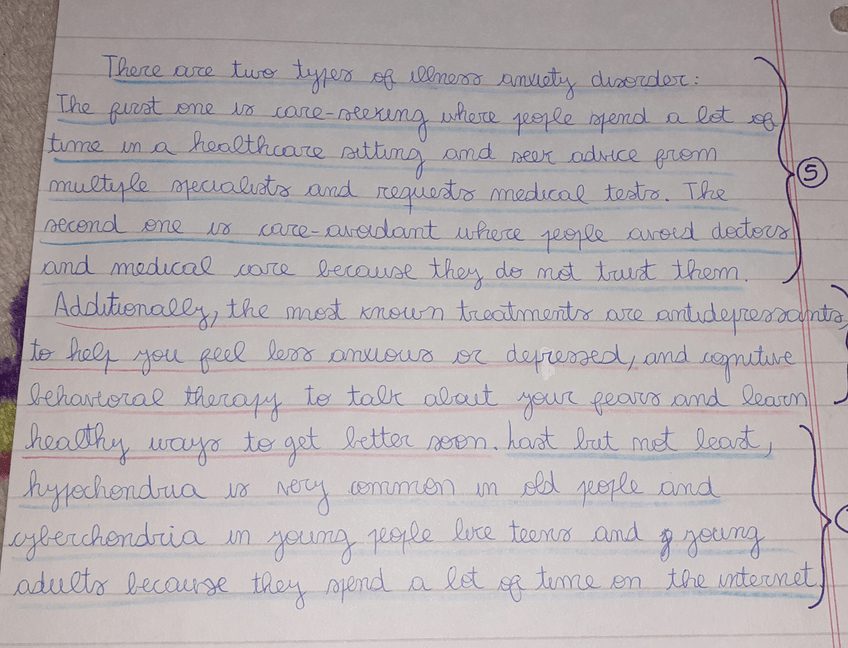 There are two types of illness anxiety disorder:
The first one is care-seeking where people spend a lot of
time in a healthcare sitting and seek advice from
multiple specialists and requests medical tests. The
second one is care-avoidant where people avoid doctors
and medical care because they do not trust them.
⑤
Additionally, the most known treatments are antidepressants
to help you feel less anxious or depressed, and cognitive
behavioral therapy to talk about your fears and learn
healthy ways to get better soon. Last but not least,
hypochondria is very common in old people and
cyberchondria in young people like teens and young
adults because they spend a lot of time on the internet.